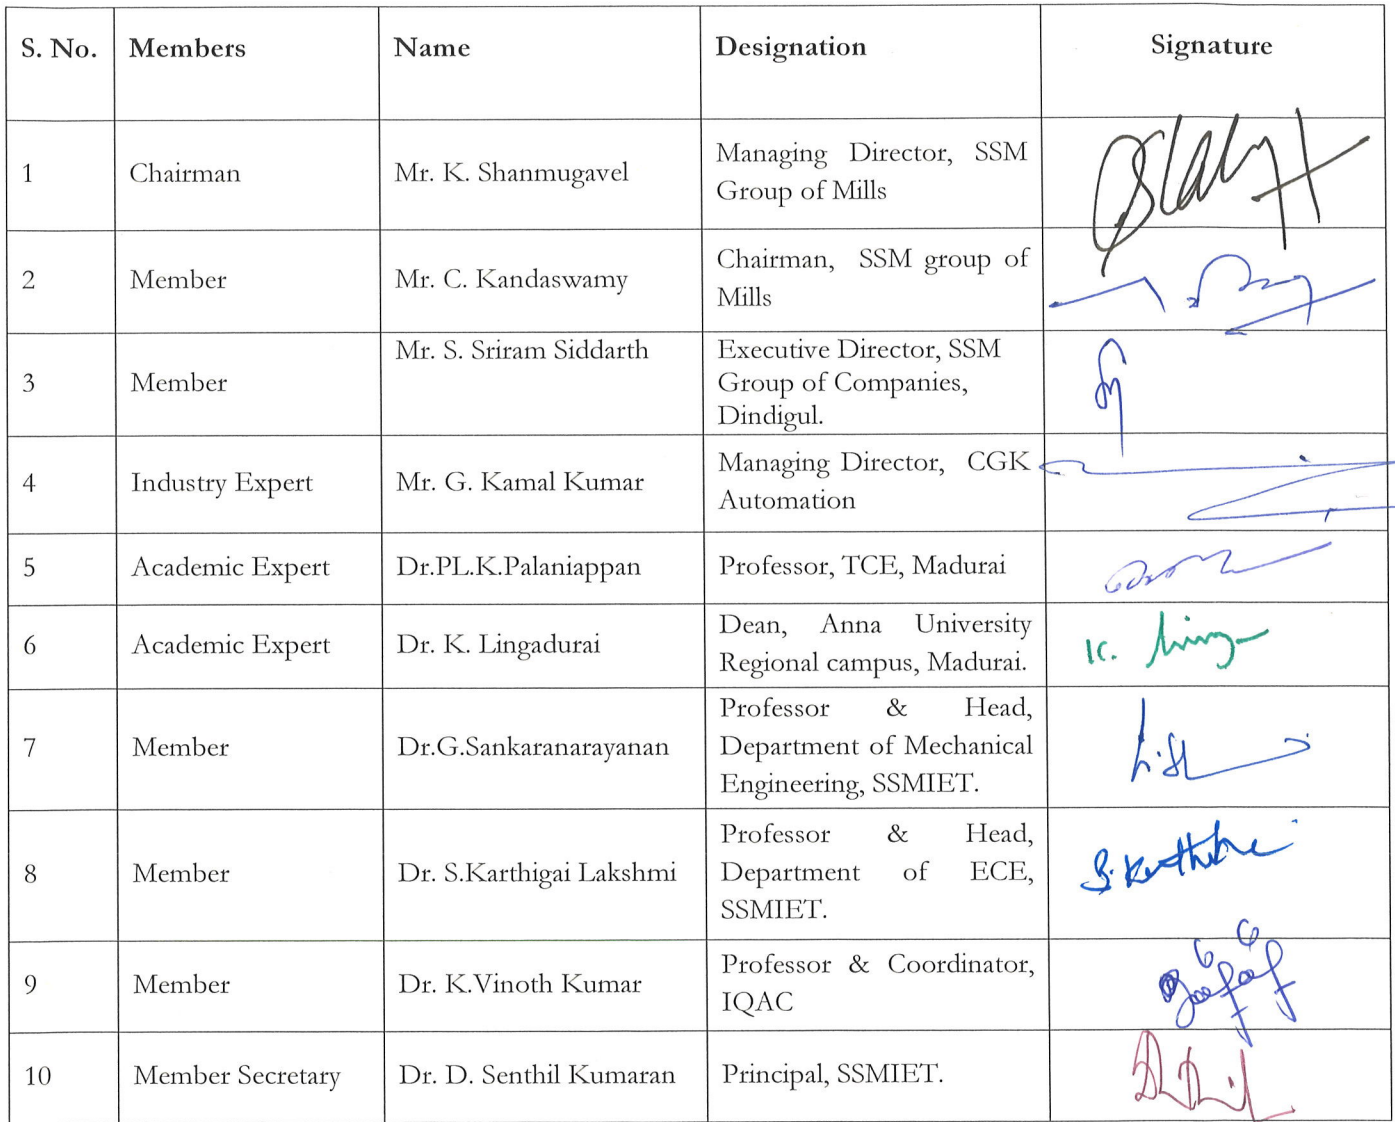 S. No. Members Name Designation Signature
1 Chairman Mr. K. Shanmugavel Managing Director, SSM
Group of Mills
2 Member Mr. C. Kandaswamy Chairman, SSM group of
Mills
3 Member Mr. S. Sriram Siddarth Executive Director, SSM
Group of Companies,
Dindigul.
4 Industry Expert Mr. G. Kamal Kumar Managing Director, CGK
Automation
5 Academic Expert Dr.PL.K.Palaniappan Professor, TCE, Madurai
6 Academic Expert Dr. K. Lingadurai Dean, Anna University
Regional campus, Madurai.
K.
7 Member Dr.G.Sankaranarayanan Professor & Head,
Department of Mechanical
Engineering, SSMIET.
8 Member Dr. S.Karthigai Lakshmi Professor & Head,
Department of ECE,
SSMIET.
9 Member Dr. K.Vinoth Kumar Professor & Coordinator,
IQAC
10 Member Secretary Dr. D. Senthil Kumaran Principal, SSMIET.